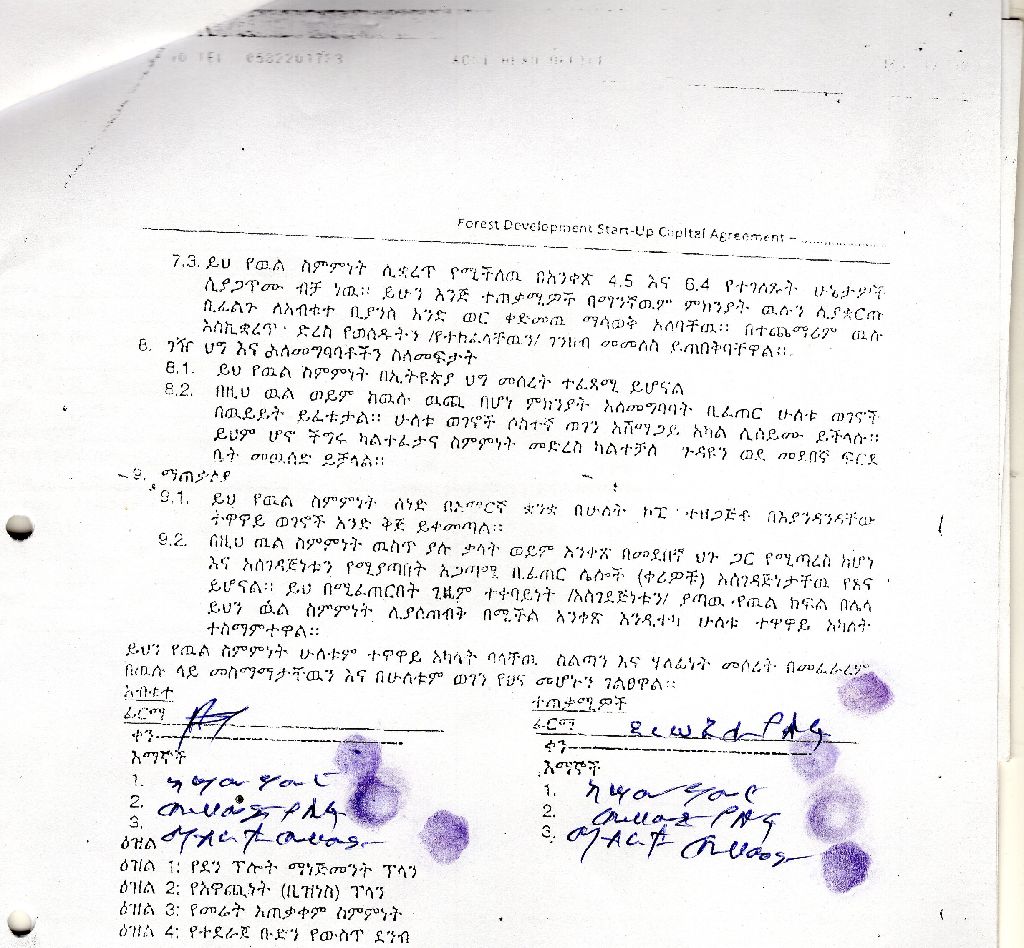 TEL 0582201723
Forest Development Start-Up Capital Agreement – ......................
7.3. ይህ የዉል ስምምነት ሊቋረጥ የሚችለዉ በአንቀጽ 4.5 እና 6.4 የተገለጹት ሁኔታዎች
ሲያጋጥሙ ብቻ ነዉ። ይሁን እንጅ ተጠቃሚዎች በማንኛዉም ምክንያት ዉሉን ሲያቋርጡ
ቢፈልጉ ለአብቁተ ቢያንስ አንድ ወር ቀድመዉ ማሳወቅ አለባቸዉ። በተጨማሪም ዉሉ
እስኪቋረጥ ድረስ የወሰዱትን /የተከፈላቸዉን/ ገንዘብ መመለስ ይጠበቅባቸዋል።
8. ገዥ ህግ እና አለመግባባቶችን ስለመፍታት
8.1. ይህ የዉል ስምምነት በኢትዮጵያ ህግ መሰረት ተፈጻሚ ይሆናል
8.2. በዚህ ዉል ወይም ከዉሉ ዉጪ በሆነ ምክንያት አለመግባባት ቢፈጠር ሁለቱ ወገኖች
በዉይይት ይፈቱታል። ሁለቱ ወገኖች ሶስተኛ ወገን አሸማጋይ አካል ሊሰይሙ ይችላሉ።
ይህም ሆኖ ችግሩ ካልተፈታና ስምምነት መድረስ ካልተቻለ ጉዳዩን ወደ መደበኛ ፍርድ
ቤት መዉሰድ ይቻላል።
9. ማጠቃለያ
9.1. ይህ የዉል ስምምነት ሰነድ በአማርኛ ቋንቋ በሁለት ኮፒ ተዘጋጅቶ በእያንዳንዳቸው
ተዋዋይ ወገኖች እንድ ቅጅ ይቀመጣል።
9.2. በዚህ ዉል ስምምነት ዉስጥ ያሉ ቃላት ወይም አንቀጽ በመደበኛ ህጉ ጋር የሚጣረስ ከሆነ
እና አስገዳጅነቱን የሚያጣበት አጋጣሚ ቢፈጠር ሌሎች (ቀሪዎቹ) አስገዳጅነታቸዉ የፀና
ይሆናል። ይህ በሚፈጠርበት ጊዜም ተቀባይነት /አስገዳጅነቱን/ ያጣዉ የዉል ክፍል በሌላ
ይህን ዉል ስምምነት ሊያስጠብቅ በሚችል አንቀጽ እንዲተካ ሁለቱ ተዋዋይ አካላት
ተስማምተዋል።
ይህን የዉል ስምምነት ሁለቱም ተዋዋይ አካላት ባላቸዉ ስልጣን እና ሃላፊነት መሰረት በመፈራረም
በዉሉ ላይ መስማማታቸዉን እና በሁለቱም ወገን የፀና መሆኑን ገልፀዋል።
አብቁተ
ፊርማ
ቀን
እማኞች
1.
2.
3.
ተጠቃሚዎች
ፊርማ
ቀን
እማኞች
1.
2.
3.
ዕዝል
ዕዝል 1: የደን ፕሎት ማኔጅመንት ፕላን
ዕዝል 2: የአዋጪነት (ቢዝነስ) ፕላን
ዕዝል 3: የመሬት አጠቃቀም ስምምነት
ዕዝል 4: የተደራጀ ቡድን የውስጥ ደንብ